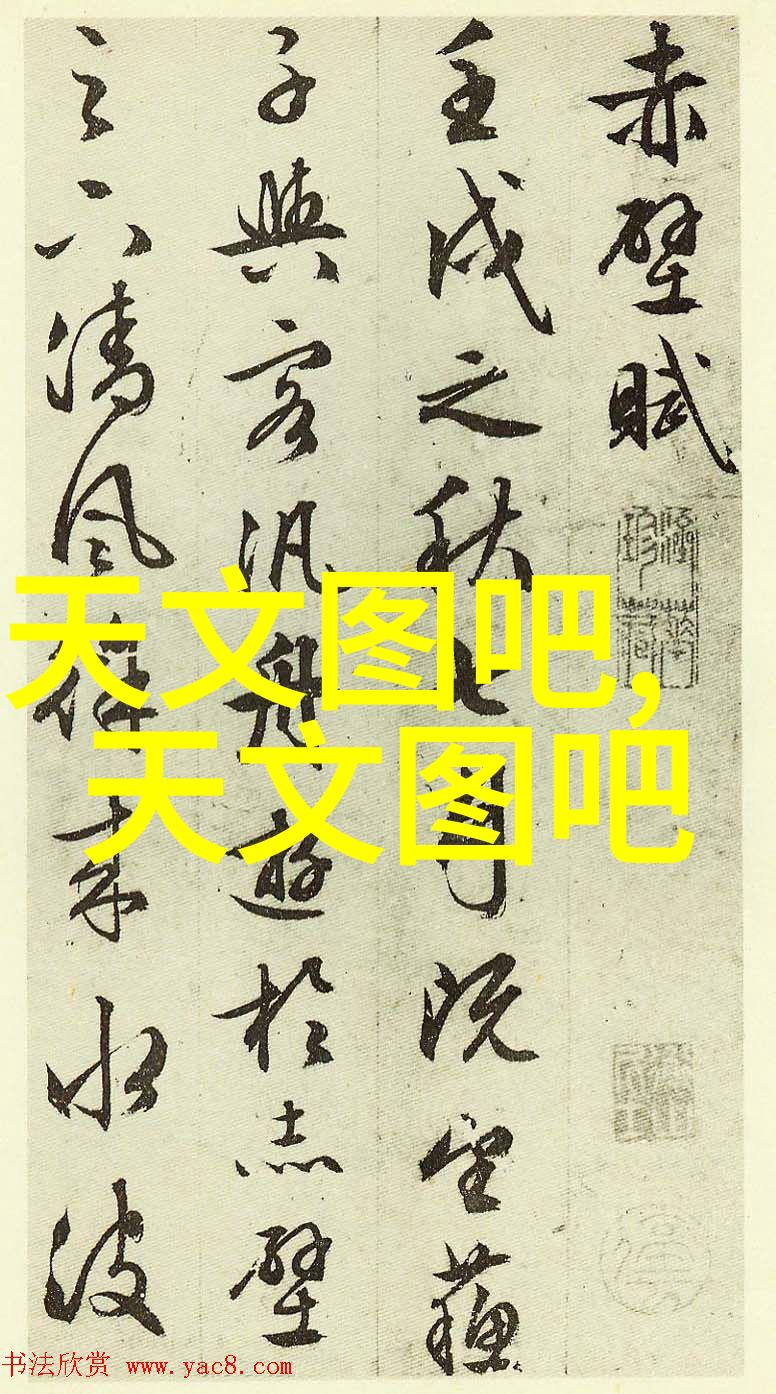 赤壁賦
壬戌之秋七月既望蘇
子與客汎舟遊於赤壁
之下清風徐來水波
天文图吧,
天文图吧
书法欣赏 www.yac8.com